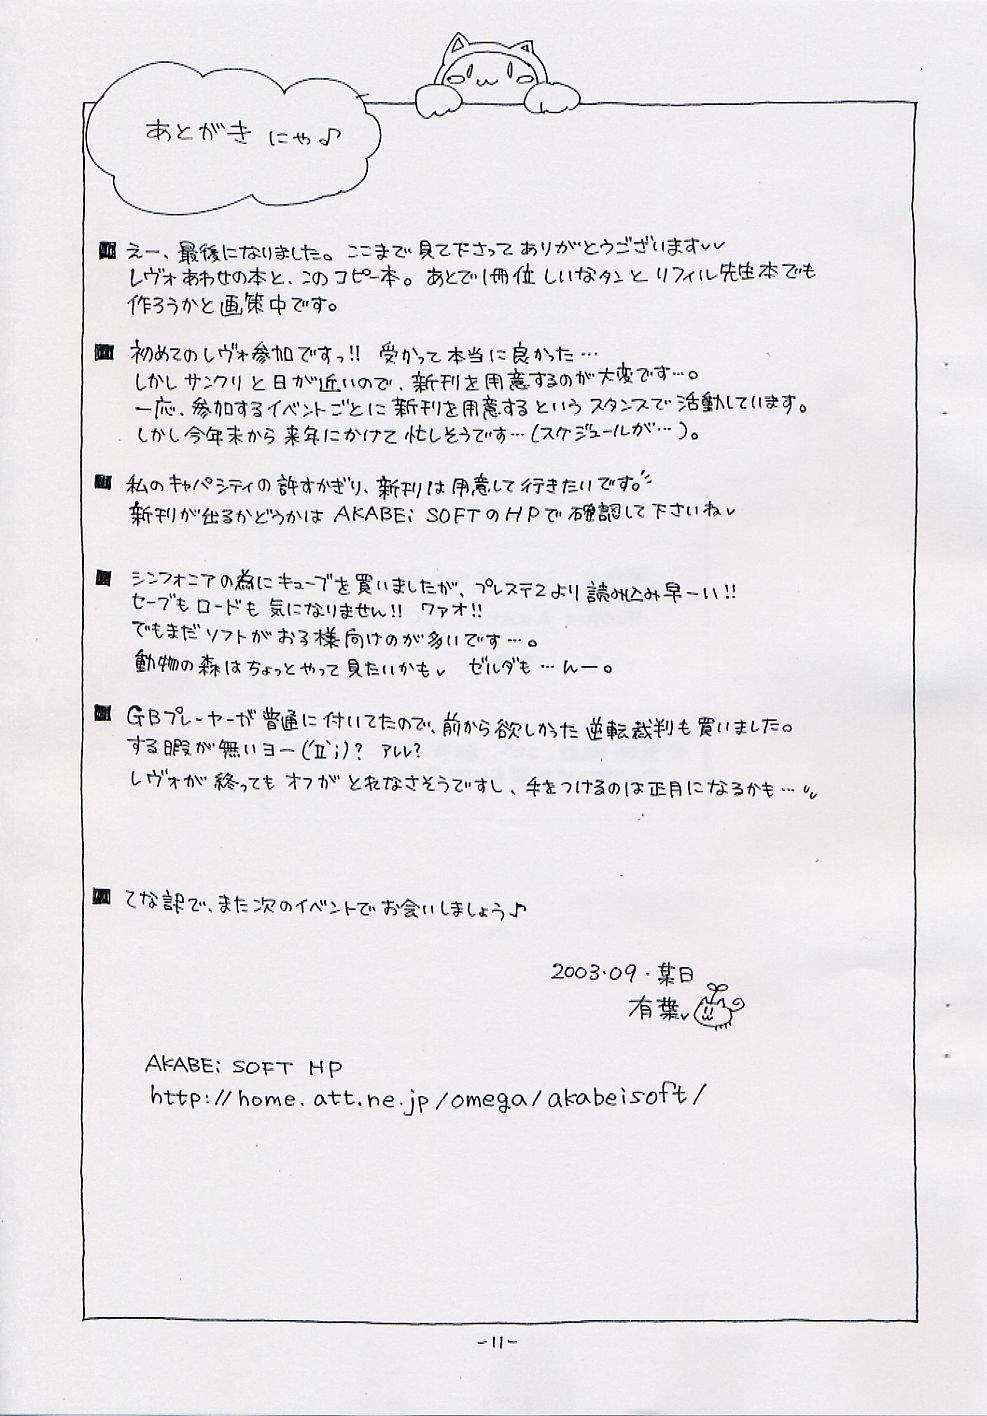 あとがき にゃ♪
■ えー、最後になりました。ここまで見て下さってありがとうございます♥♥
レヴォあわせの本と、このコピー本。あとで1冊位しいなタンとリフィル先生本でも
作ろうかと画策中です。
■ 初めてのレヴォ参加ですっ!! 受かって本当に良かった…
しかしサンクリと日が近いので、新刊を用意するのが大変です…。
一応、参加するイベントごとに新刊を用意するというスタンスで活動しています。
しかし今年末から来年にかけて忙しそうです…(スケジュールが…)。
■ 私のキャパシティの許すかぎり、新刊は用意して行きたいです。
新刊が出るかどうかはAKABEi SOFTのHPで確認して下さいね♥
■ シンフォニアの為にキューブを買いましたが、プレステ2より読み込み早ーい!!
セーブもロードも気になりません!! ワァオ!!
でもまだソフトがお子様向けのが多いです…。
動物の森はちょっとやって見たいかも♥ ゼルダも…んー。
■ GBプレーヤーが普通に付いてたので、前から欲しかった逆転裁判も買いました。
する暇が無いヨー(´Д`;)? アレレ?
レヴォが終ってもオフがとれなさそうですし、手をつけるのは正月になるかも…
■ てな訳で、また次のイベントでお会いしましょう♪
2003.09.某日
有葉♥
AKABEi SOFT HP
http://home.att.ne.jp/omega/akabeisoft/
-11-